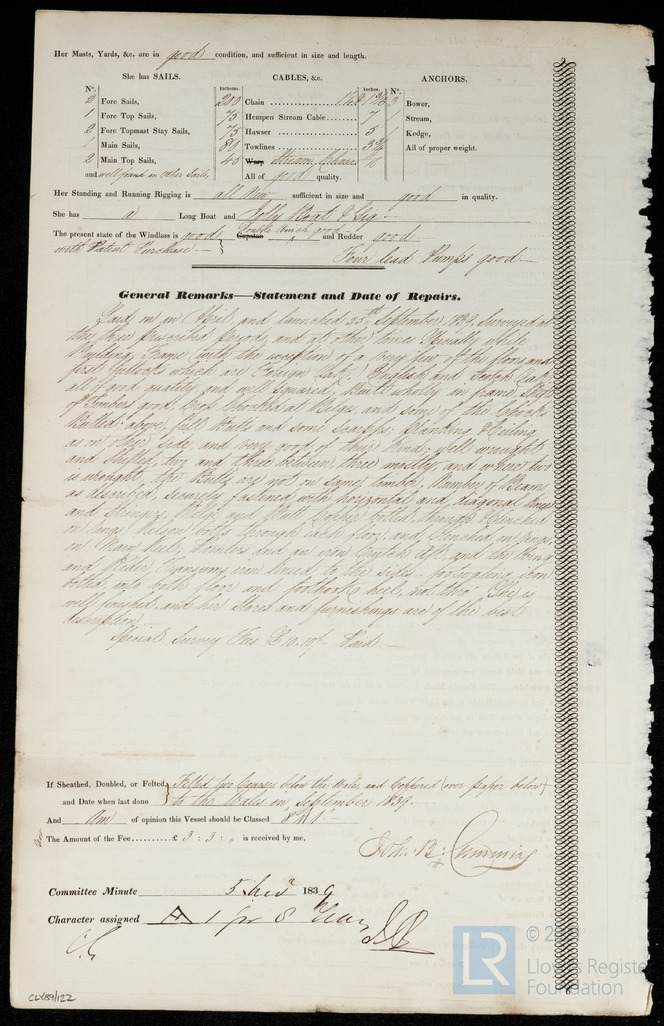 Her Masts, Yards, &c. are in good condition, and sufficient in size and length.
She has SAILS. CABLES, &c. ANCHORS.
No. Fathoms. Inches. No.
2 Fore Sails, 200 Chain 3 Bower,
1 Fore Top Sails, 75 Hempen Stream Cable 7 1 Stream,
2 Fore Topmast Stay Sails, 75 Hawser 5 1 Kedge,
1 Main Sails, 80 Towlines All of proper weight.
2 Main Top Sails, 45 Warp Stream Chain
and well found in Other Sails All of good quality.
Her Standing and Running Rigging is all New sufficient in size and good in quality.
She has a Long Boat and Jolly Boat & Gig
The present state of the Windlass is good Capstan Double Winch good and Rudder good
with Patent Purchase Four lead Pumps good
General Remarks—Statement and Date of Repairs.
Laid on in April, and launched 25th September 1839, Surveyed at
the three prescribed periods, and at other times Specially while
Building, Frame with the exception of a very few of the floors and
first futtocks which are Foreign Oak, English and Scotch Oak
all of good quality, and well squared, Built wholly in frame, Shifts
of Timbers good, Cross Chocked at Bilge, and some of the Chocks
Bolted: above, full Butts and some Scarphs: Planking & Ceiling
as on other side and very good of their kind; well wrought
and Shifted, two and three between, three mostly, and where two
is wrought, the Butts are not on same timber, Number of Beams
as described, securely fastened with horizontal and diagonal Knees
and Stringers, Bilge and Butt Copper bolted, through & Clenched
on rings, Kelson bolts through each floor, and Clenched on rings,
on Main Keel; Pointers and an iron Crutch aft, and the Wing
and Rider Transoms iron kneed to the sides - footwaling iron
bolted into both floor and foothook heel, not thro'. She is
well finished and her Stores and furnishings are of the best
description.
Special Survey Fee £10.10/- Paid
If Sheathed, Doubled, or Felted and Date when last done Felted two Courses below the Wales, and Coppered (over paper below)
to the Wales in September 1839.
And am of opinion this Vessel should be Classed 8 A 1
The Amount of the Fee £ 3 : 3 : 0 is received by me,
Cumming
Committee Minute 5 1839
Character assigned A 1 for 8 Years
CLY59/122
LR
©
Lloyd's Register
Foundation